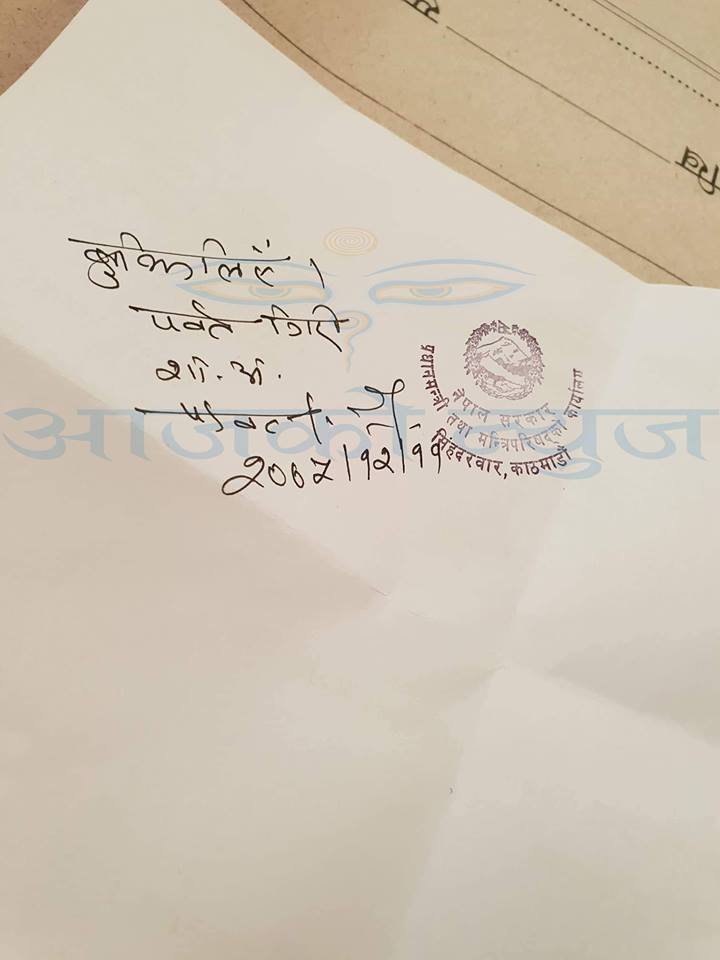 बुझिलिएँ ।
पर्वत गिरी
शा. अ.
२०७४।१२।११
नेपाल सरकार
प्रधानमन्त्री तथा मन्त्रिपरिषदको कार्यालय
सिंहदरवार, काठमाडौं
आजको न्युज